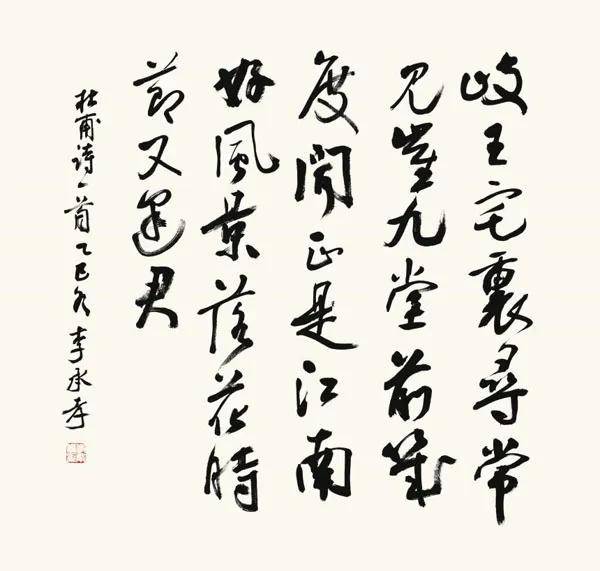 岐王宅裏尋常
見崔九堂前幾
度聞正是江南
好風景落花時
節又逢君
杜甫诗一首乙巳冬李承孝